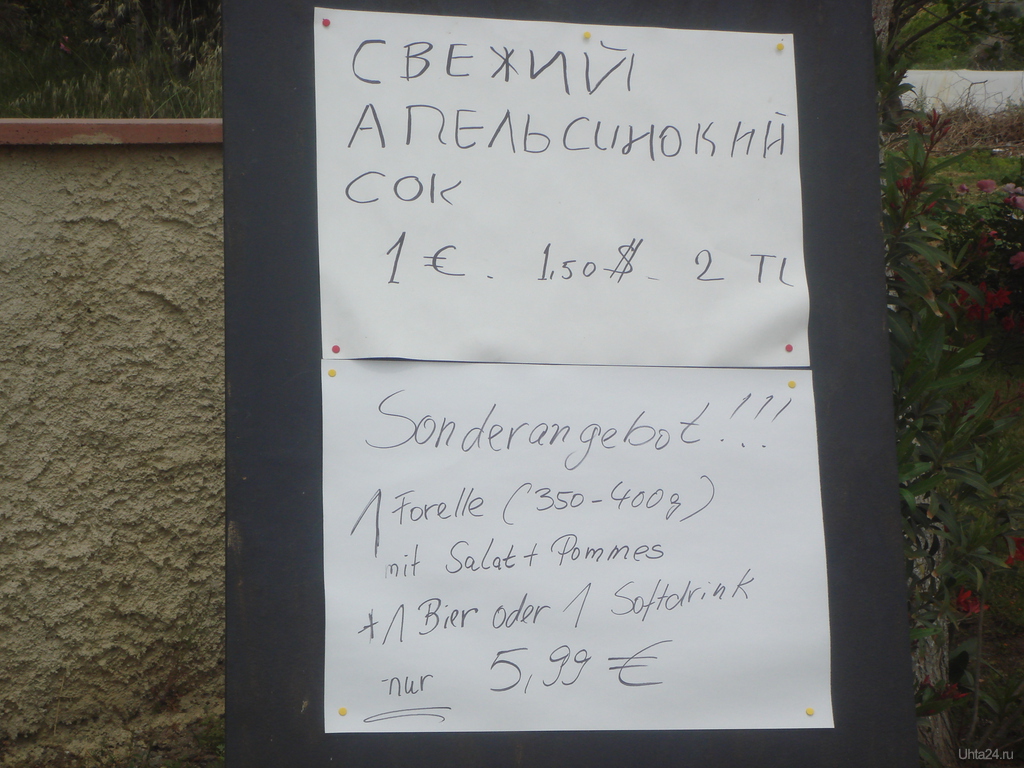 СВЕЖИЙ
АПЕЛЬСИНОКИЙ
СОК
1 €. 1,50 $ - 2 TL
Sonderangebot!!!
1 Forelle (350-400g)
mit Salat + Pommes
+ 1 Bier oder 1 Softdrink
nur 5,99 €
Uhta24.ru